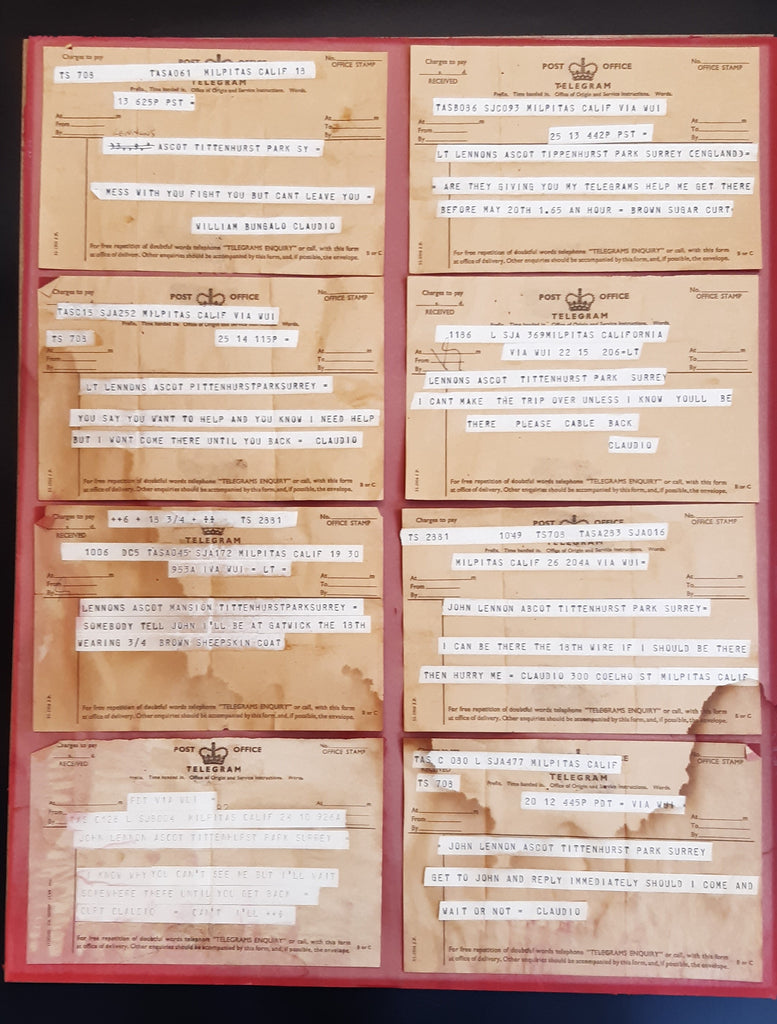 Charges to pay
POST OFFICE
No.
OFFICE STAMP
TS 708 TASA061 MILPITAS CALIF 18
TELEGRAM
Prefix. Time handed in. Office of Origin and Service Instructions. Words.
13 625P PST =
At m
From
By
At m
To
By
LENNONS
ASCOT TITTENHURST PARK SY =
MESS WITH YOU FIGHT YOU BUT CANT LEAVE YOU =
WILLIAM BUNGALO CLAUDIO
For free repetition of doubtful words telephone "TELEGRAMS ENQUIRY" or call, with this form
at office of delivery. Other enquiries should be accompanied by this form, and, if possible, the envelope.
B or C
Charges to pay
s. d.
RECEIVED
POST OFFICE
TELEGRAM
No.
OFFICE STAMP
Prefix. Time handed in. Office of Origin and Service Instructions. Words.
TASB036 SJC093 MILPITAS CALIF VIA WUI
25 13 442P PST =
At m
From
By
At m
To
By
LT LENNONS ASCOT TIPPENHURST PARK SURREY (ENGLAND)=
= ARE THEY GIVING YOU MY TELEGRAMS HELP ME GET THERE
BEFORE MAY 20TH 1.65 AN HOUR = BROWN SUGAR CURT
For free repetition of doubtful words telephone "TELEGRAMS ENQUIRY" or call, with this form
at office of delivery. Other enquiries should be accompanied by this form, and, if possible, the envelope.
B or C
Charges to pay
POST OFFICE
No.
OFFICE STAMP
TASC15 SJA252 MILPITAS CALIF VIA WUI
Prefix. Time handed in. Office of Origin and Service Instructions. Words.
TS 708 25 14 115P =
At m
From
By
At m
To
By
LT LENNONS ASCOT PITTENHURSTPARKSURREY =
YOU SAY YOU WANT TO HELP AND YOU KNOW I NEED HELP
BUT I WONT COME THERE UNTIL YOU BACK = CLAUDIO
For free repetition of doubtful words telephone "TELEGRAMS ENQUIRY" or call, with this form
at office of delivery. Other enquiries should be accompanied by this form, and, if possible, the envelope.
B or C
Charges to pay
s. d.
RECEIVED
POST OFFICE
TELEGRAM
No.
OFFICE STAMP
Prefix. Time handed in. Office of Origin and Service Instructions. Words.
.1186 L SJA 369MILPITAS CALIFORNIA
VIA WUI 22 15 206=LT
At m
From
By
At m
To
By
LENNONS ASCOT TITTENHURST PARK SURREY
I CANT MAKE THE TRIP OVER UNLESS I KNOW YOULL BE
THERE PLEASE CABLE BACK
CLAUDIO
For free repetition of doubtful words telephone "TELEGRAMS ENQUIRY" or call, with this form
at office of delivery. Other enquiries should be accompanied by this form, and, if possible, the envelope.
B or C
Charges to pay
RECEIVED
++6 + 18 3/4 + TS 2881
TELEGRAM
No.
OFFICE STAMP
1006 DC5 TASA045 SJA172 MILPITAS CALIF 19 30
953A IVA WUI = LT =
At m
From
By
At m
To
By
LENNONS ASCOT MANSION TITTENHURSTPARKSURREY =
SOMEBODY TELL JOHN I'LL BE AT GATWICK THE 18TH
WEARING 3/4 BROWN SHEEPSKIN COAT
For free repetition of doubtful words telephone "TELEGRAMS ENQUIRY" or call, with this form
at office of delivery. Other enquiries should be accompanied by this form, and, if possible, the envelope.
B or C
Charges to pay
POST OFFICE
No.
OFFICE STAMP
TS 2881 1049 TS708 TASA283 SJA016
Prefix. Time handed in. Office of Origin and Service Instructions. Words.
MILPITAS CALIF 26 204A VIA WUI=
At m
From
By
At m
To
By
JOHN LENNON ABCOT TITTENHURST PARK SURREY=
I CAN BE THERE THE 18TH WIRE IF I SHOULD BE THERE
THEN HURRY ME = CLAUDIO 300 COELHO ST MILPITAS CALIF
For free repetition of doubtful words telephone "TELEGRAMS ENQUIRY" or call, with this form
at office of delivery. Other enquiries should be accompanied by this form, and, if possible, the envelope.
Charges to pay
RECEIVED
POST OFFICE
TELEGRAM
No.
OFFICE STAMP
Prefix. Time handed in. Office of Origin and Service Instructions. Words.
PDT VIA WUI =
At m
TAS C128 L SJB004 MILPITAS CALIF 24 10 926A
JOHN LENNON ASCOT TITTENHURST PARK SURREY =
I KNOW WHY YOU CAN'T SEE ME BUT I'LL WAIT
SOMEWHERE THERE UNTIL YOU GET BACK =
CURT CLAUDIO = CAN'T I'LL ++6
For free repetition of doubtful words telephone "TELEGRAMS ENQUIRY" or call, with this form
at office of delivery. Other enquiries should be accompanied by this form, and, if possible, the envelope.
B or C
Charges to pay
No.
OFFICE STAMP
TAS C 080 L SJA477 MILPITAS CALIF
TELEGRAM
TS 708
Prefix. Time handed in. Office of Origin and Service Instructions. Words.
20 12 445P PDT = VIA WUI =
At m
To
By
JOHN LENNON ASCOT TITTENHURST PARK SURREY
GET TO JOHN AND REPLY IMMEDIATELY SHOULD I COME AND
WAIT OR NOT = CLAUDIO
For free repetition of doubtful words telephone "TELEGRAMS ENQUIRY" or call, with this form
at office of delivery. Other enquiries should be accompanied by this form, and, if possible, the envelope.
B or C